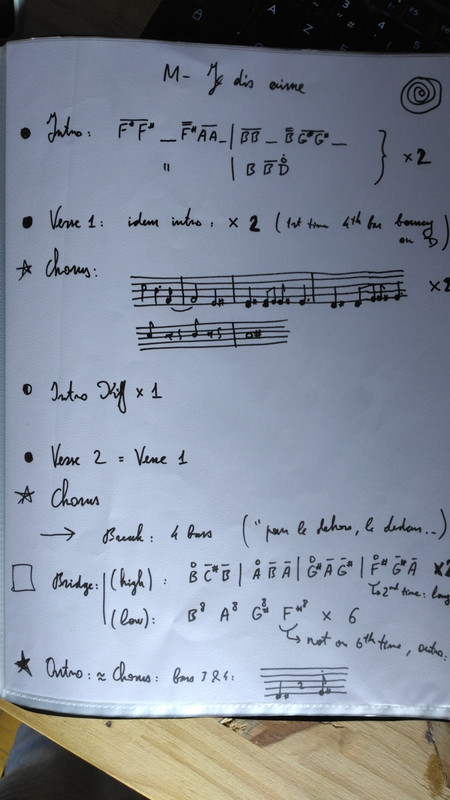 M - Je dis aime
Intro: F# F# _ F# A A _ | B B _ B G# G# _ } x2
" | B B D
Verse 1: idem intro : x 2 (1st time 4th bar bouncy on B)
Chorus: x2
Intro Riff x 1
Verse 2 = Verse 1
Chorus
→ Break: 4 bars ("pour le dehors, le dedans..)
Bridge: (high): B C# B | A B A | G# A G# | F# G# A x2
↳ 2nd time: long
(low): B A G# F# x 6
↳ not on 6th time, outro:
Outro: ≈ Chorus: bars 3 & 4: